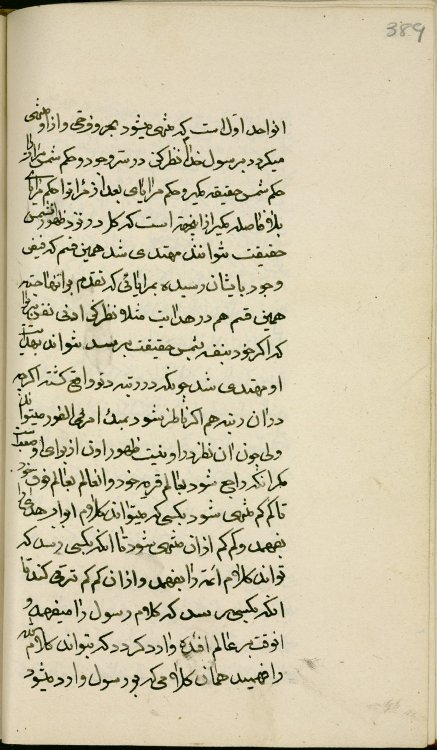 389
از واحد اول است که منتهی میشود بحروف حی و از او منتهی
میگردد برسول خدا نظر کن در سر وجود و حکم شمس
حکم شمس حقیقت بگیر و حکم مرایای بعد از مرایا حکم مرایای
بلا فاصله بگیر از این جهت است که کل در نزد ظهور شمس
حقیقت نتوانند مهتدی شد همین قسم که فیض
وجود بایشان رسیده بمرایائی که تقدم بر آنها جسته
همین قسم هم در هدایت مثلا نظر کن ادنی نفسی
که اگر خود بنفسه بشمس حقیقت برسد نتواند بهدایت
او مهتدی شد چونکه در رتبه خود واقع گشته اگرچه
در آن رتبه هم اگر ناظر شود بمبدء امر فی الفور میتواند
ولی چون آن نظر در او نیست ظهور اون از برای او صعب است
مگر آنکه راجع شود بعالم قرب خود و از عالم بعالم فوق خود
تا کم کم منتهی شود بکسی که میتواند کلام ابواب هدی را
بفهمد و کم کم از آن منتهی شود تا آنکه بکسی رسد که
تواند کلام ائمه را بفهمد و از آن کم کم ترقی کند تا
آنکه بکسی برسد که کلام رسول را میفهمد و
آنوقت بر عالم افئده وارد گردد که بتواند کلام الله
را فهمید همان کلامی که بر رسول وارد میشود